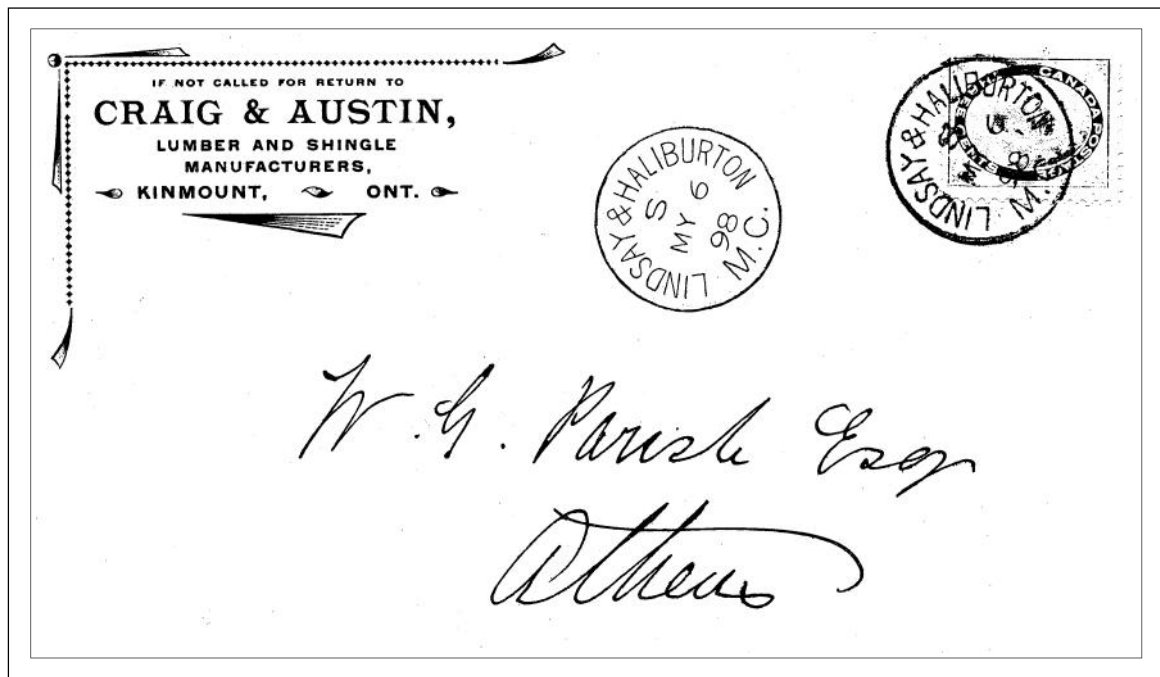 IF NOT CALLED FOR RETURN TO
CRAIG & AUSTIN,
LUMBER AND SHINGLE
MANUFACTURERS,
KINMOUNT, ONT.
LINDSAY & HALIBURTON M.C.
S
MY 6
98
LINDSAY & HALIBURTON M.
CANADA POSTAGE
W. G. Parish Esq
Athens